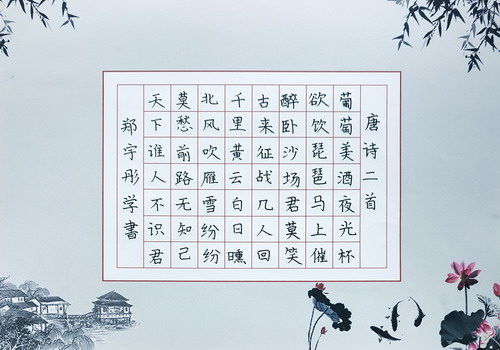 唐诗二首
葡萄美酒夜光杯
欲饮琵琶马上催
醉卧沙场君莫笑
古来征战几人回
千里黄云白日曛
北风吹雁雪纷纷
莫愁前路无知己
天下谁人不识君
郑宇彤学書